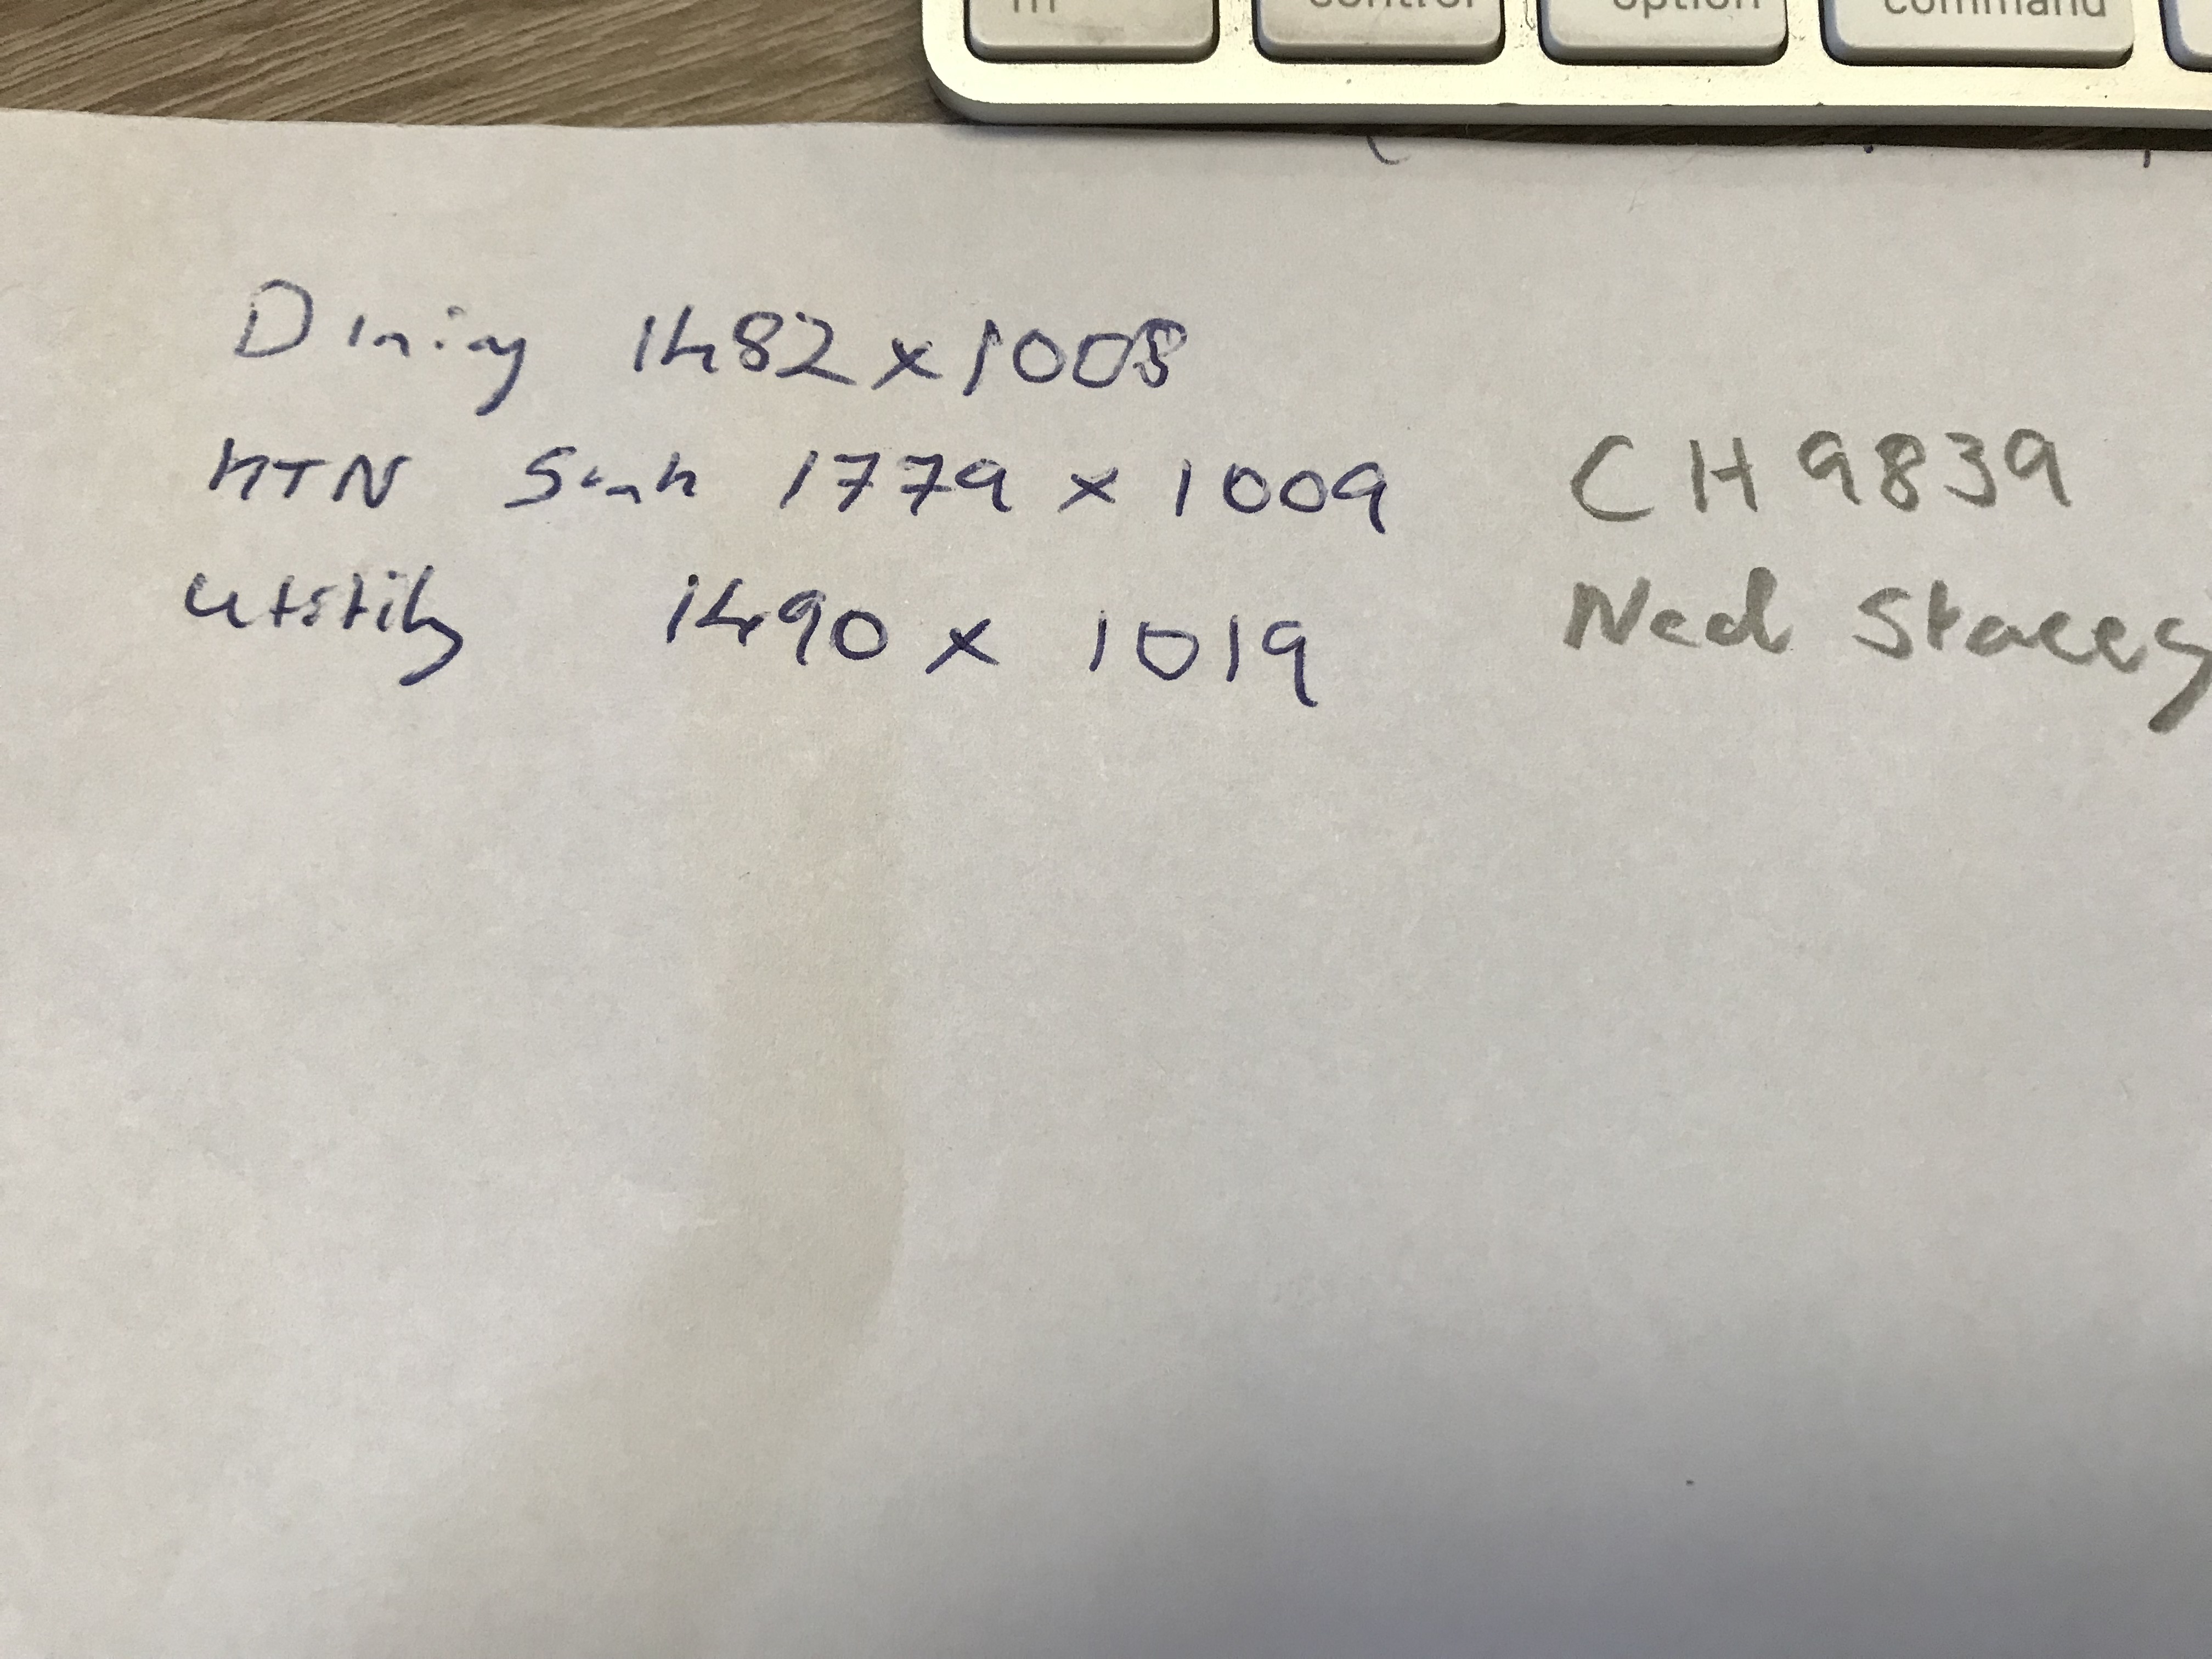 control option command
Dining 1482 x 1008
KTN Sink 1779 x 1009 CH 9839
Utility 1490 x 1019 Ned Stacey